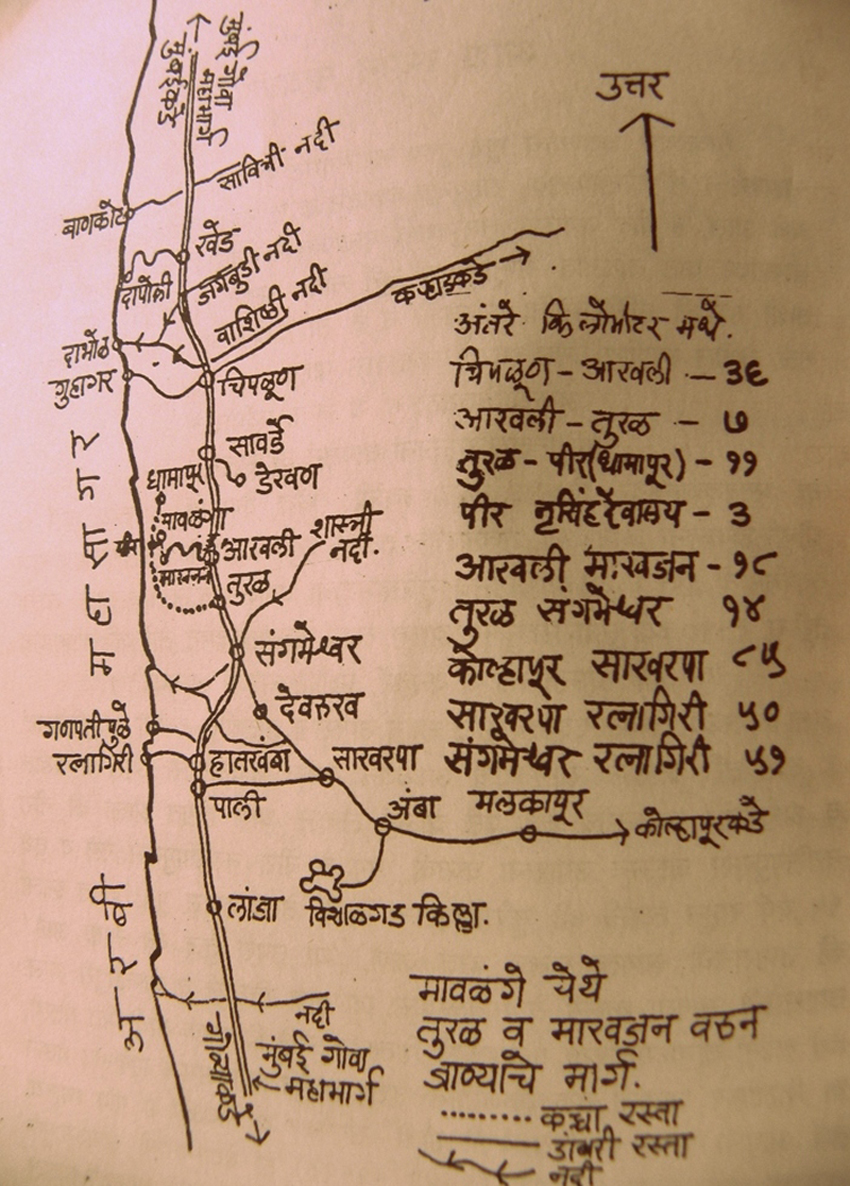 मुंबई गोवा
महामार्ग
मुंबईकडे
उत्तर
सावित्री नदी
बाणकोट
खेड
दापोली
जगबुडी नदी
वाशिष्ठी नदी
कऱ्हाडकडे
दाभोळ
गुहागर
चिपळूण
सावर्डे
डेरवण
धामापूर
मावळंगे
शास्त्री
नदी.
आरवली
माखजन
तुरळ
संगमेश्वर
देवरुख
गणपतीपुळे
रत्नागिरी
हातखंबा
साखरपा
पाली
अंबा
मलकापूर
कोल्हापूरकडे
विशाळगड किल्ला.
लांजा
नदी
मुंबई गोवा
महामार्ग
गोव्याकडे
अरबी महासागर
अंतरे किलोमीटर मध्ये.
चिपळूण - आरवली - ३६
आरवली - तुरळ - ७
तुरळ - पीर(धामापूर) - ११
पीर नृसिंहदेवालय - ३
आरवली माखजन - १८
तुरळ संगमेश्वर १४
कोल्हापूर साखरपा ८५
साखरपा रत्नागिरी ५०
संगमेश्वर रत्नागिरी ५१
मावळंगे येथे
तुरळ व माखजन वरुन
जाण्याचे मार्ग.
कच्चा रस्ता
डांबरी रस्ता
नदी